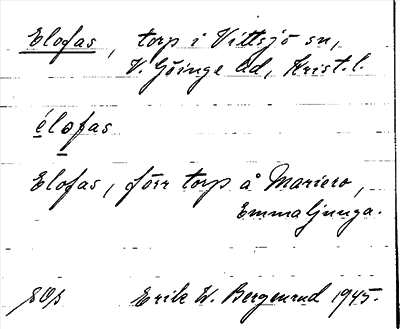 Elofas, torp i Vittsjö sn,
V. Göinge hd, Krist. l.
élofas
Elofas, förr torp å Mariero,
Emmaljunga.
Erik W. Bergenrud 1945.